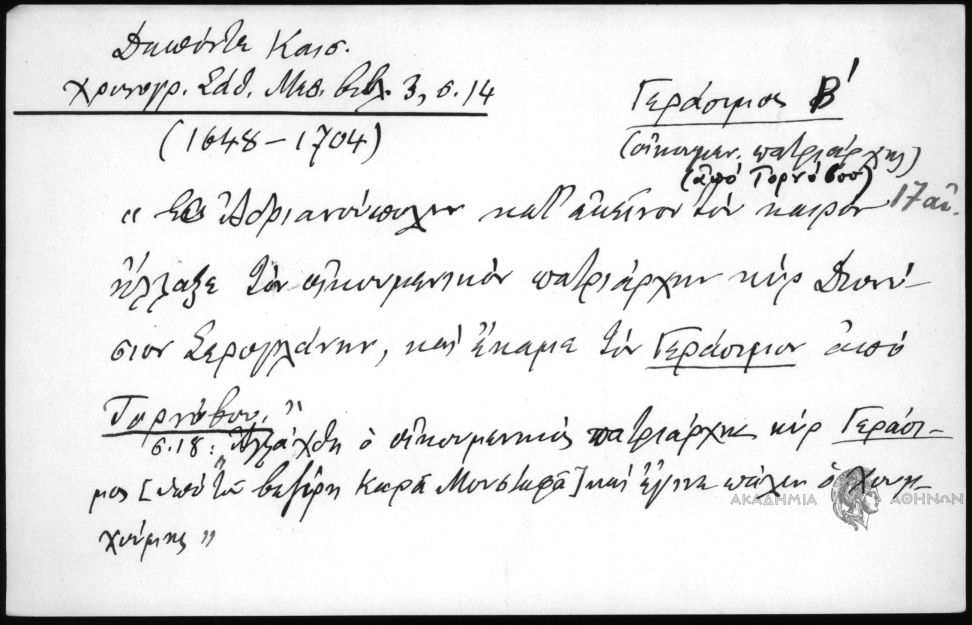 Δαπόντε Καισ.
Χρονογρ. Σάθ. Μεσ. βιβλ. 3, σ. 14
(1648 – 1704)
Γεράσιμος Β'
(οἰκουμεν. πατριάρχης)
(ἀπό Τορνόβου)
17 αἰ.
" Εἰς Ἀδριανούπολιν κατ' ἐκεῖνον τόν καιρόν
ἤλλαξε τόν οἰκουμενικόν πατριάρχην κύρ Διονύ-
σιον Σερογλάνην, καί ἔκαμε τόν Γεράσιμον ἀπό
Τορνόβου."
σ.18: "Ἀλλάχθη ὁ οἰκουμενικός πατριάρχης κύρ Γεράσι-
μος [ὑπό τοῦ βεζίρη Καρᾶ Μουσταφᾶ] καί ἔγινε πάλιν ὁ
ΑΚΑΔΗΜΙΑ ΑΘΗΝΩΝ